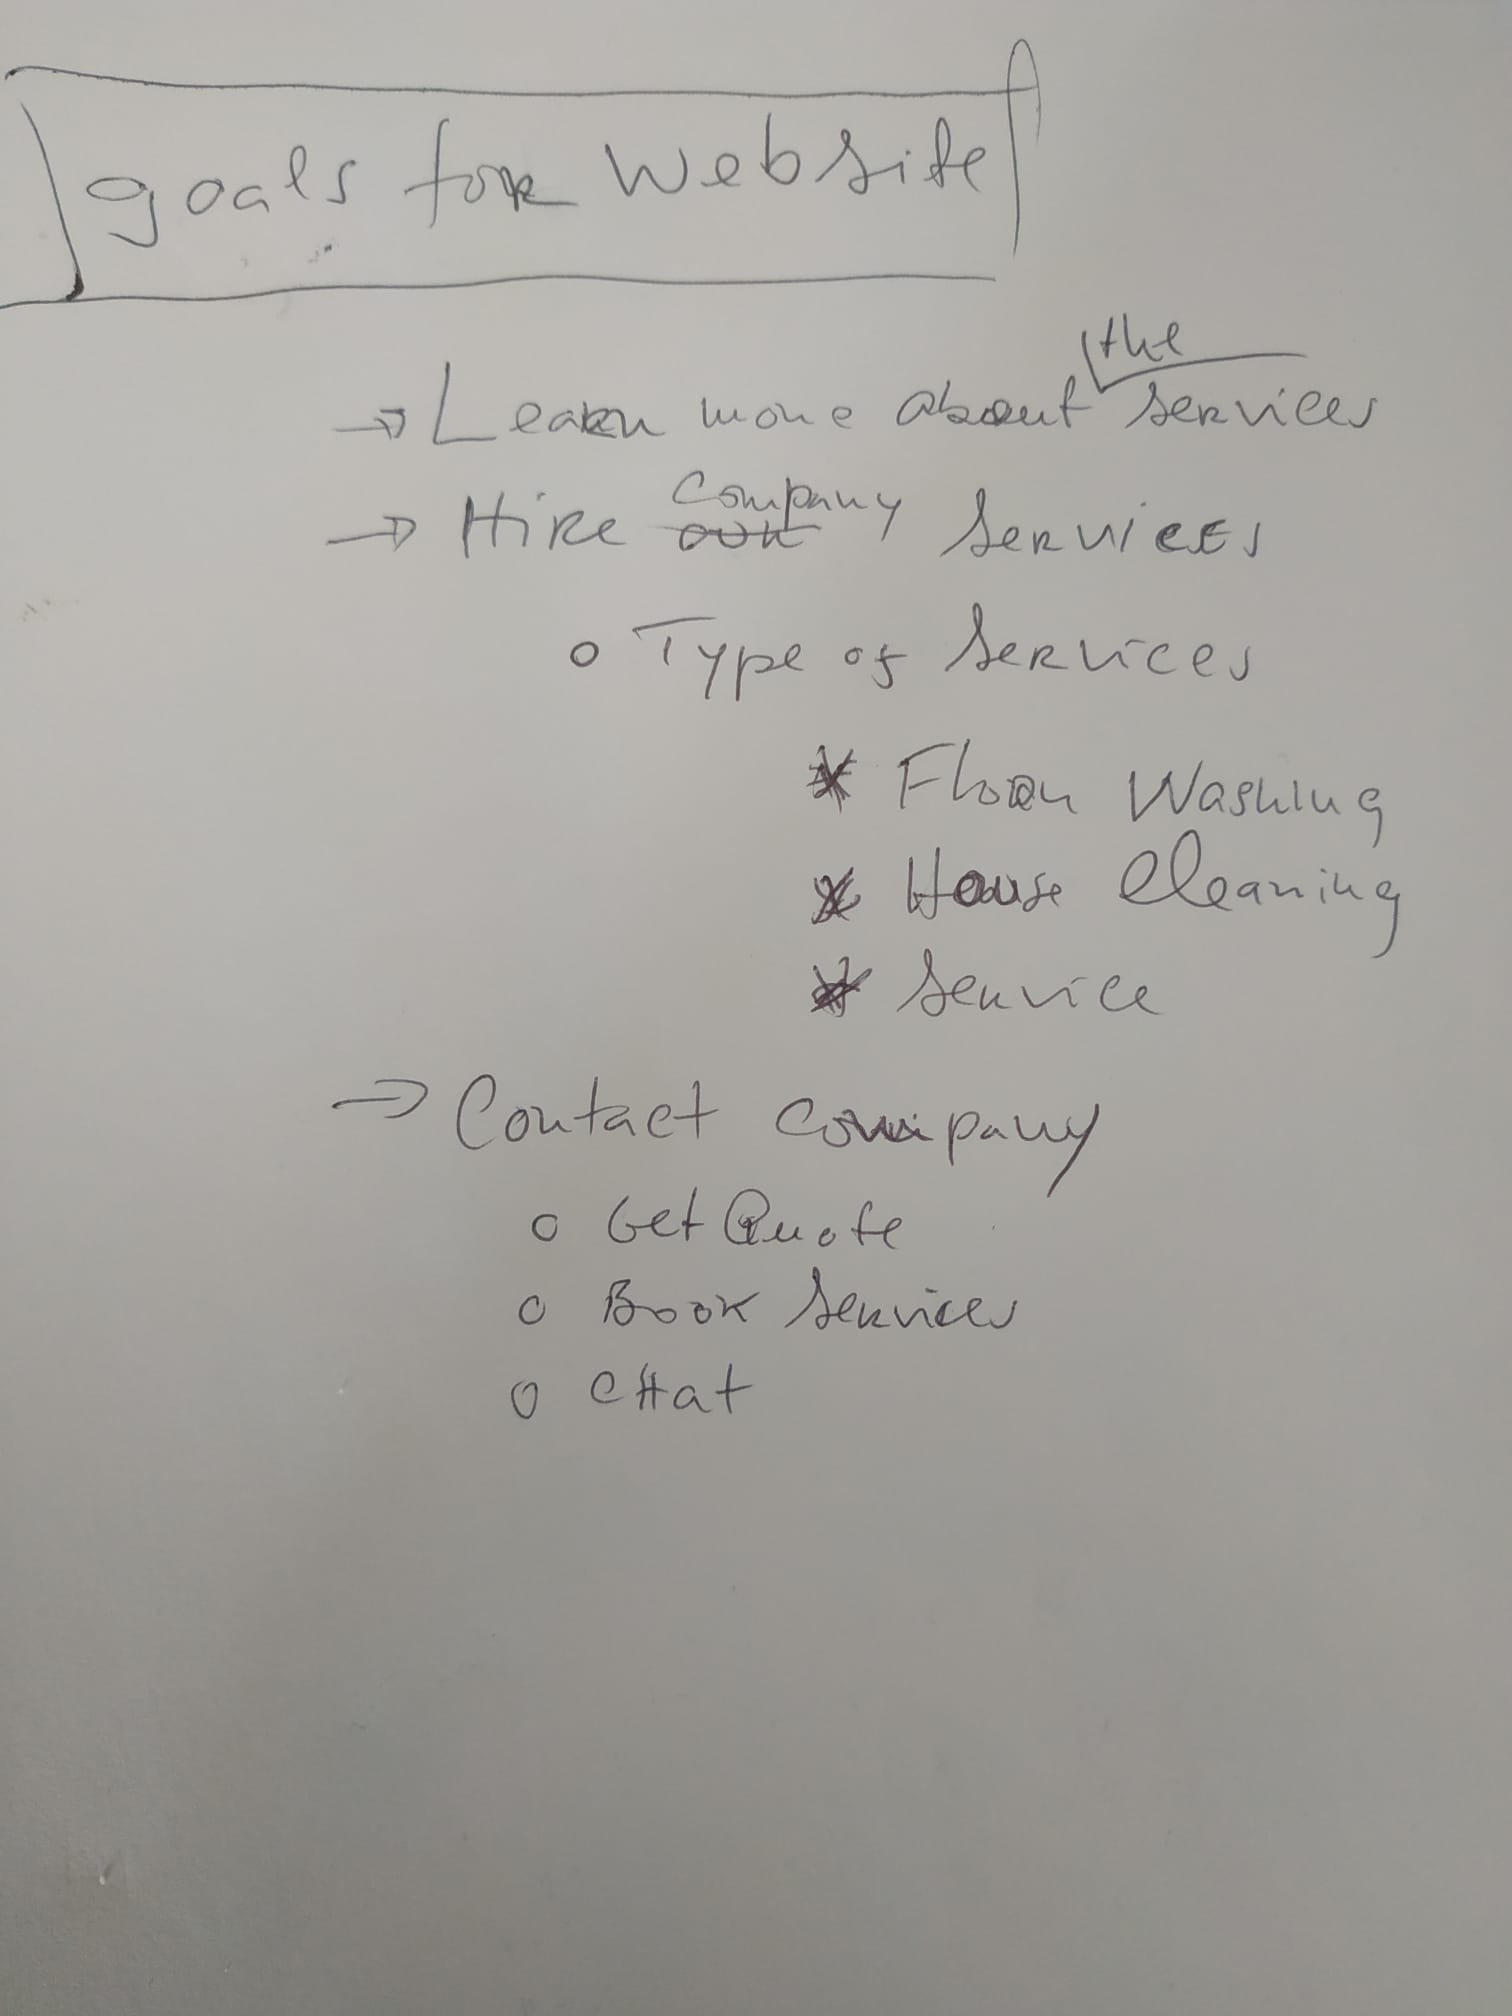 goals for website
→ Learn more about the services
→ Hire company our services
o Type of services
* Floor Washing
* House Cleaning
* Service
→ Contact company
o Get Quote
o Book Services
o CHat